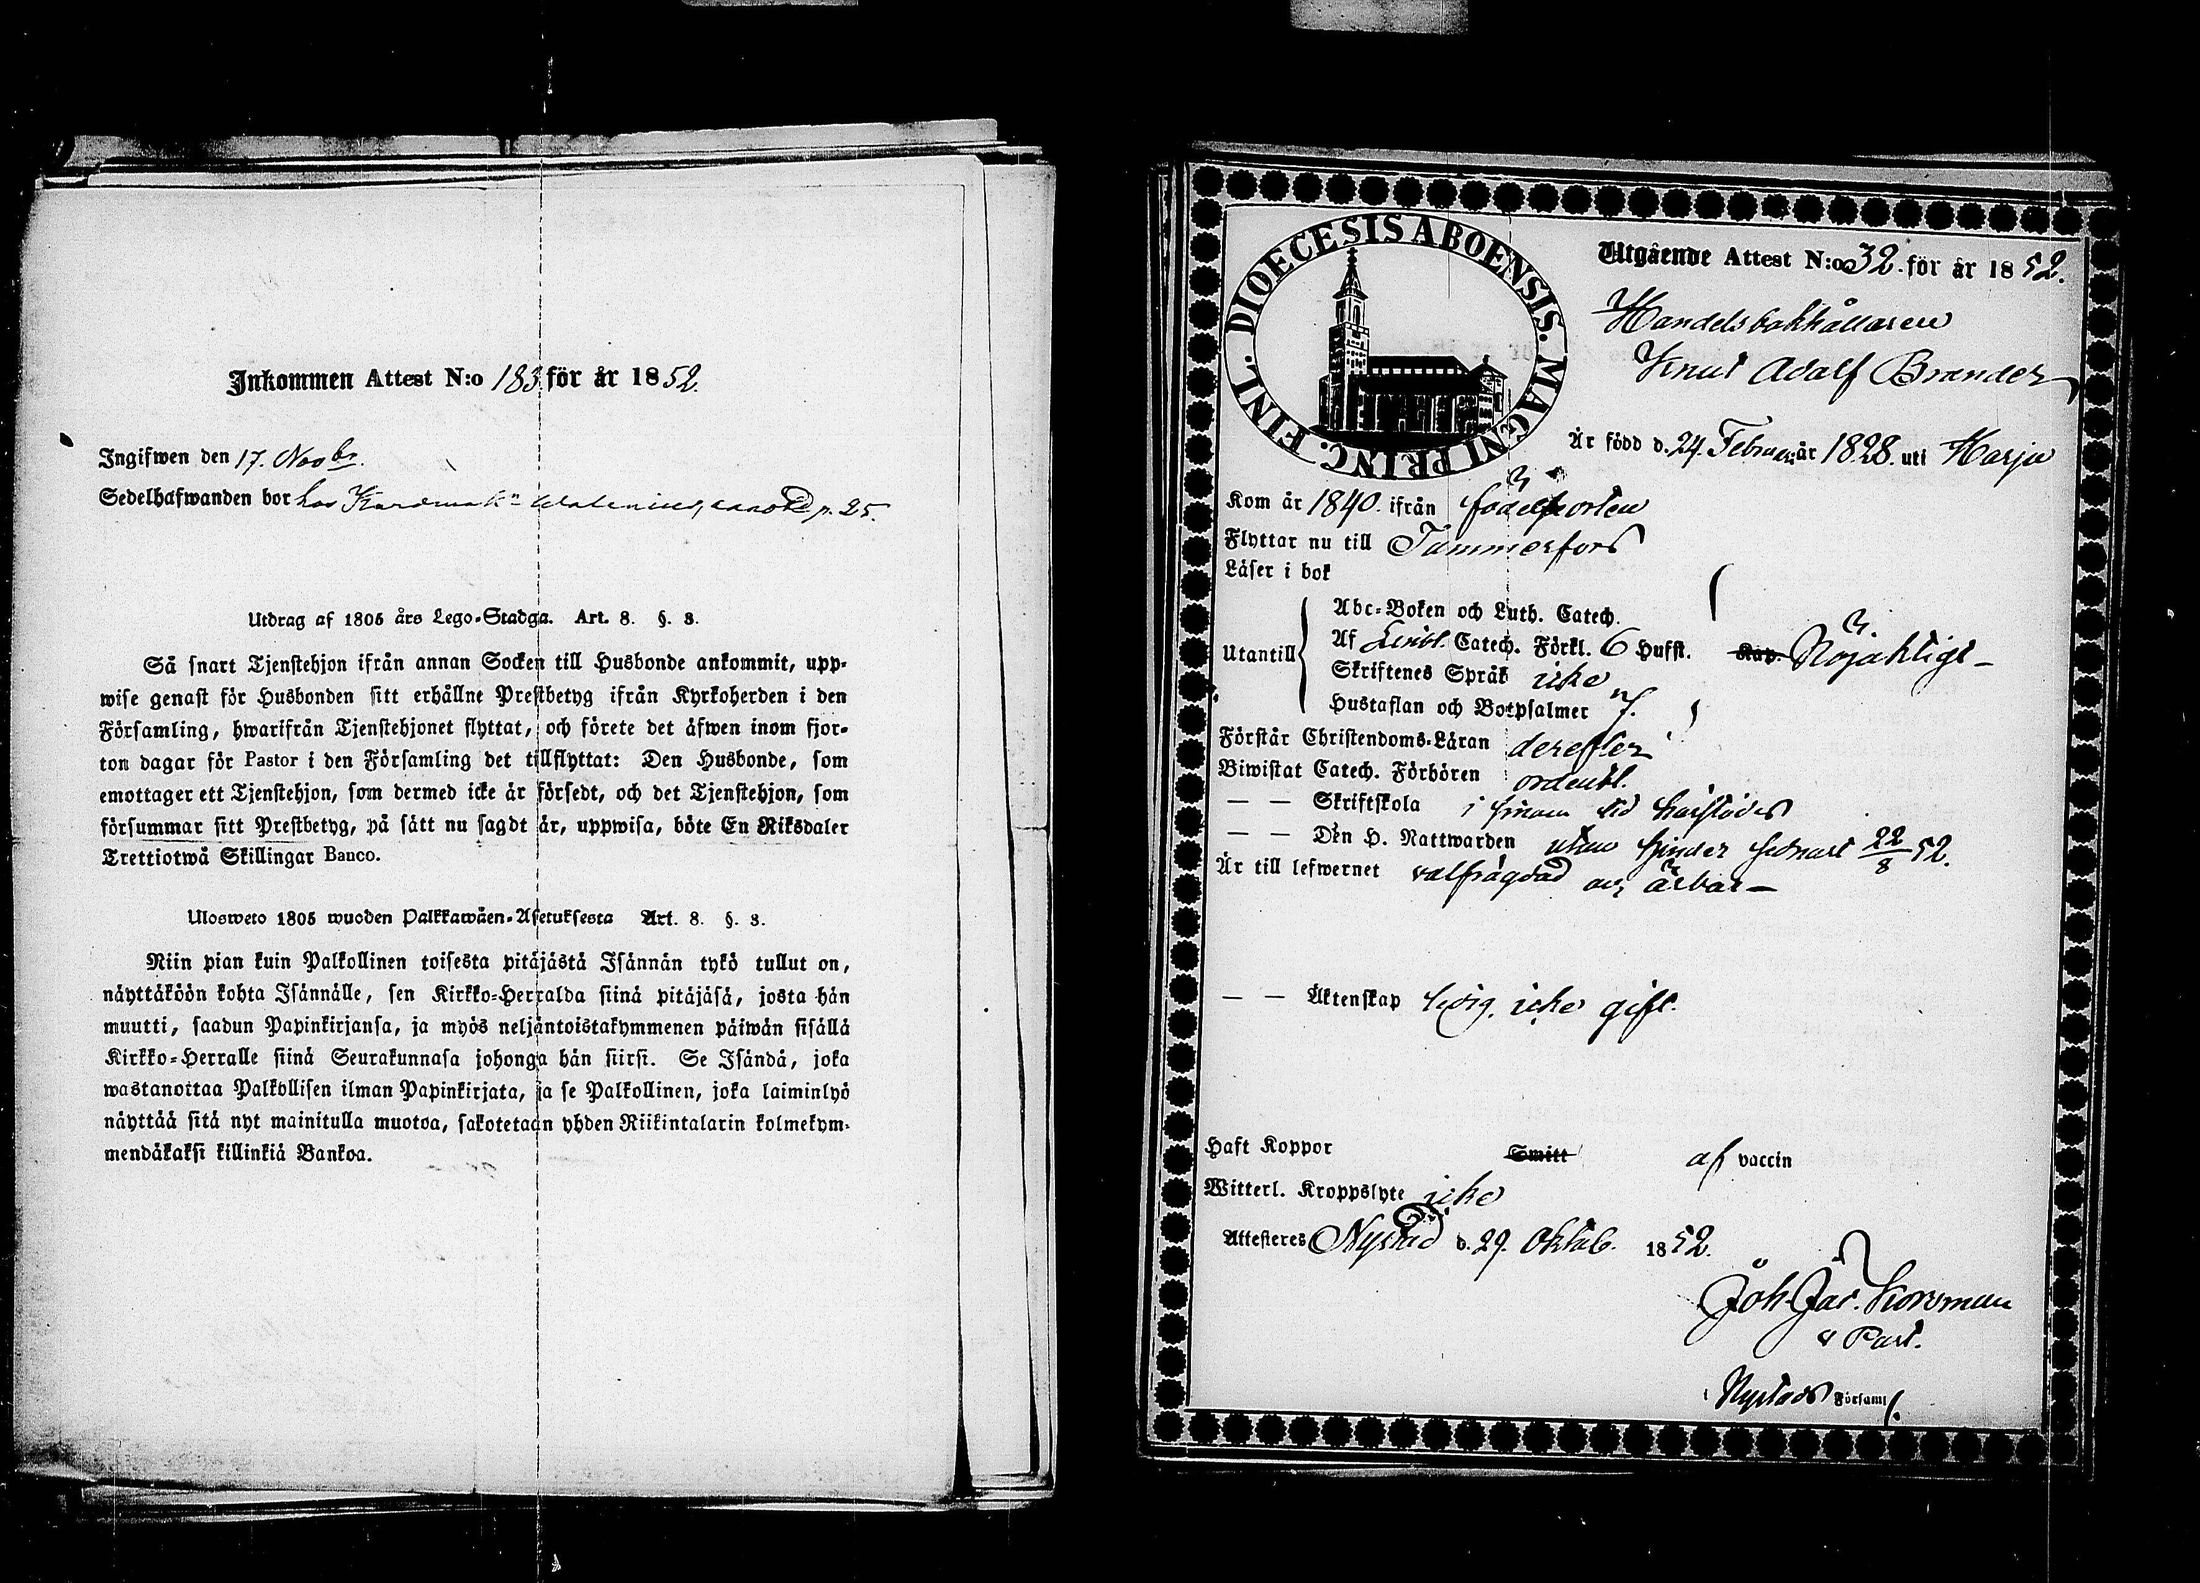 Inkommen Attest N:o 183 för år 1852.
Ingifwen den 17. Novbr.
Sedelhafwanden bor hos p. 25.
Utdrag af 1805 års Lego-Stadga. Art. 8. §. 3.
Så snart Tjenstehjon ifrån annan Socken till Husbonde ankommit, upp-
wise genast för Husbonden sitt erhållne Prestbetyg ifrån Kyrkoherden i den
Församling, hwarifrån Tjenstehjonet flyttat, och förete det äfwen inom fjor-
ton dagar för Pastor i den Församling det tillflyttat: Den Husbonde, som
emottager ett Tjenstehjon, som dermed icke är försedt, och det Tjenstehjon, som
försummar sitt Prestbetyg, på sätt nu sagdt är, uppwisa, böte En Riksdaler
Trettiotwå Skillingar Banco.
Ulosweto 1805 wuoden Palkkawäen-Asetuksesta Art. 8. §. 3.
Niin pian kuin Palkollinen toisesta pitäjästä Isännän tykö tullut on,
näyttäköön kohta Isännälle, sen Kirkko-Herralda siinä pitäjäsä, josta hän
muutti, saadun Papinkirjansa, ja myös neljäntoistakymmenen päiwän sisällä
Kirkko-Herralle siinä Seurakunnasa johonga hän siirsi. Se Isändä, joka
wastanottaa Palkollisen ilman Papinkirjata, ja se Palkollinen, joka laiminlyö
näyttää sitä nyt mainitulla muotoa, sakotetaan yhden Riikintalarin kolmekym-
mendäkaksi killinkiä Bankoa.
DIOECESIS ABOENSIS. MAGNI PRINC. FINL.
Utgående Attest N:o 32. för år 1852.
Handelsbokhållaren
Knut Adolf Brander
Är född d. 24. Februari år 1828. uti Harju
Kom år 1840. ifrån födelseorten
Flyttar nu till Tammerfors
Läser i bok
Abc-Boken och Luth. Catech.
Utantill Af Catech. Förkl. 6 Hufst. Kap. Nöjaktigt
Skriftenes Språk icke
Hustaflan och Botpsalmer
Förstår Christendoms-Läran derefter
Biwistat Catech. Förhören ordentl.
— — Skriftskola i sinom tid härstädes
— — Den H. Nattwarden utan hinder sednast 22/8 52.
Är till lefwernet välfrägdad och ärbar
— — Äktenskap ledig. icke gift.
Haft Koppor Smitt af vaccin
Witterl. Kroppslyte icke
Attesteres Nystad d. 29. Oktob. 1852.
Joh. Jac. Korsman
v Past.
i Nystads Församl.